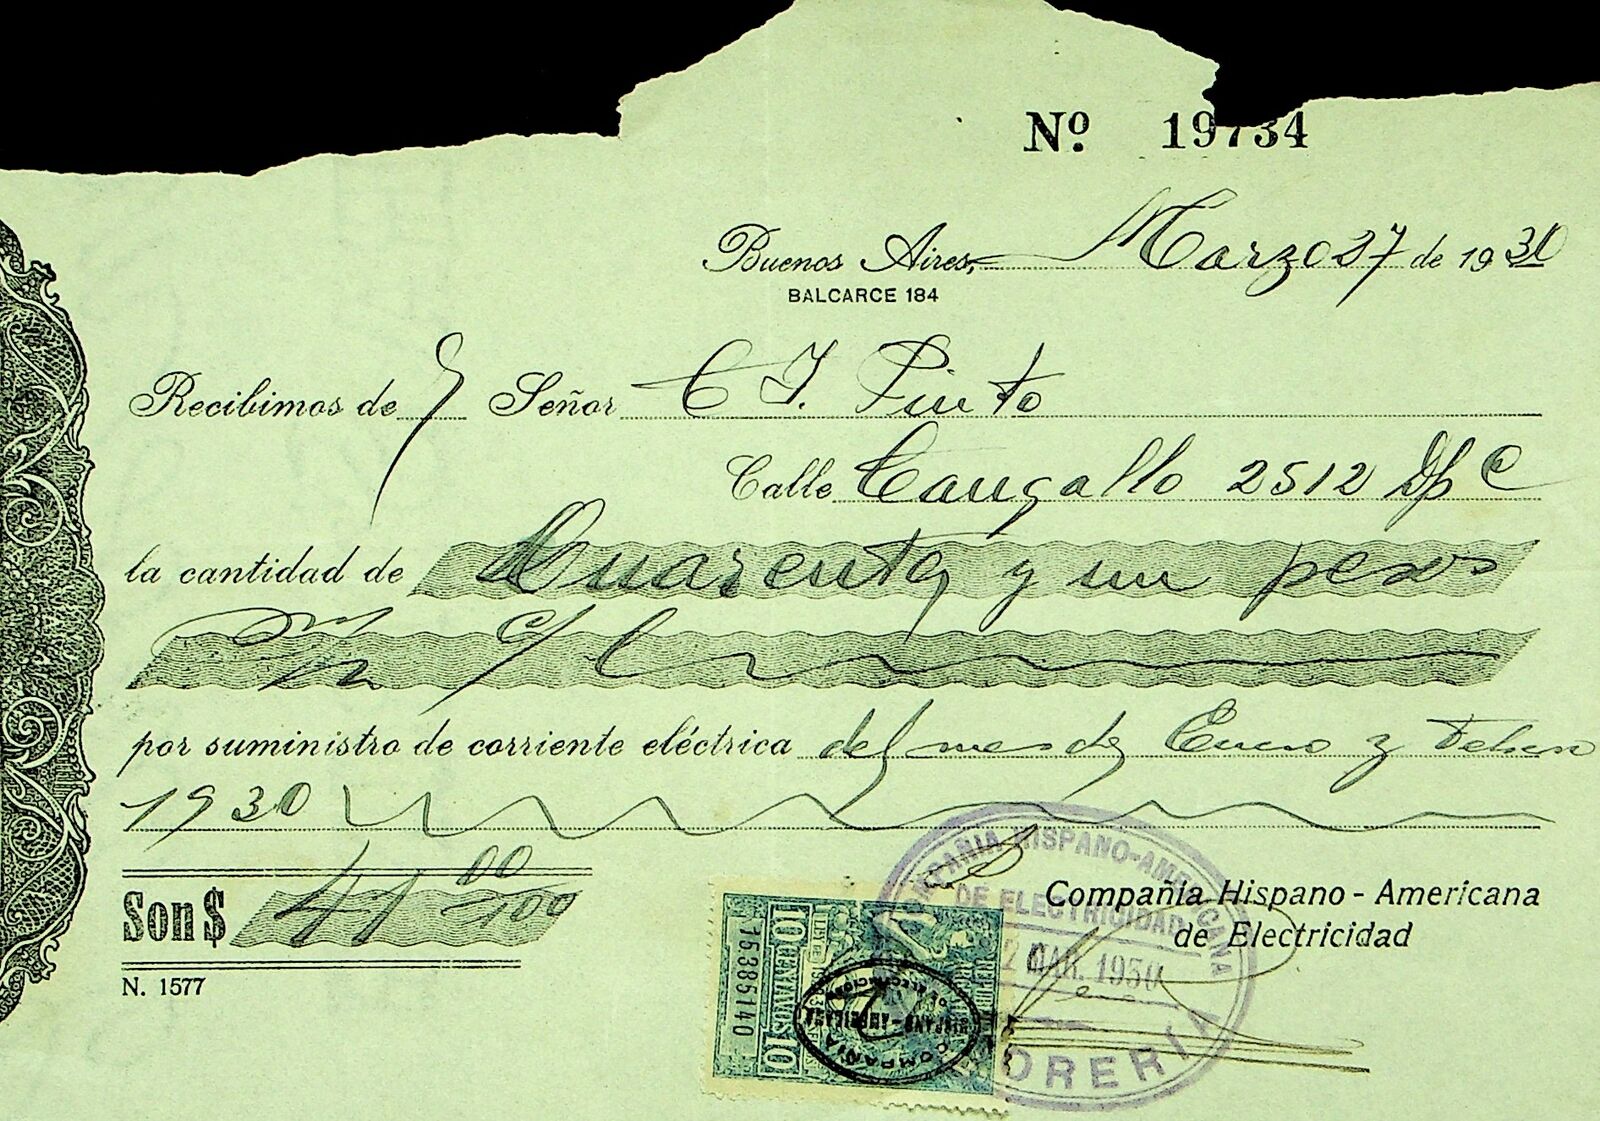 Nº 19734
Buenos Aires, Marzo 27 de 1930
BALCARCE 184
Recibimos de Señor C I. Pinto
Calle Cangallo 2512 Dp C
la cantidad de Cuarenta y un pesos
m/n c/l
por suministro de corriente eléctrica del mes de Enero y Febrero
1930
Son $ 41 00/100
N. 1577
Compañia Hispano - Americana
de Electricidad
COMPAÑIA HISPANO-AMERICANA
DE ELECTRICIDAD
MAR. 1930
ORERIA
10 CENTAVOS 10
15385140
COMPAÑIA
HISPANO - AMERICANA
DE ELECTRICIDAD